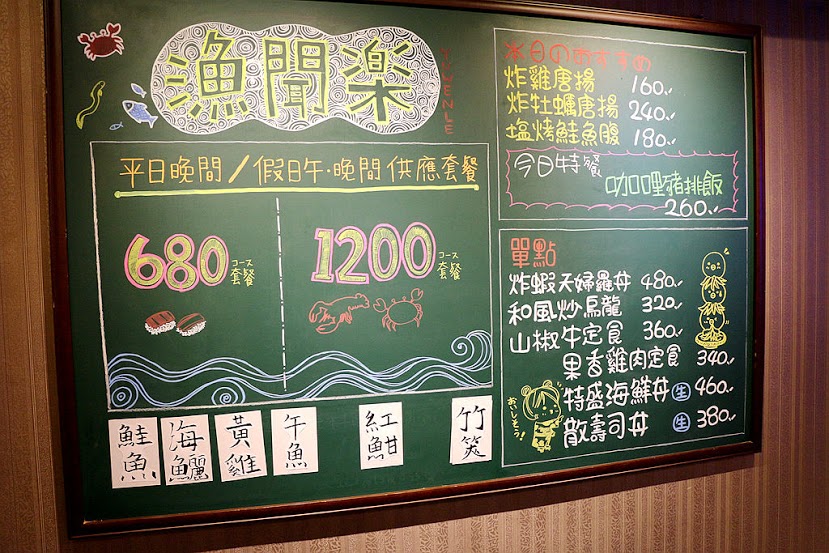 漁聞楽
YUWENLE
平日晚間/假日午·晚間供應套餐
680 コース 套餐
1200 コース 套餐
鮭魚
海鱺
黃雞
午魚
紅魽
竹筴
本日のおすすめ
炸雞唐揚 160.
炸牡蠣唐揚 240.
塩烤鮭魚腹 180.
今日特餐
咖哩豬排飯
260.
單點
炸蝦天婦羅丼 480.
和風炒烏龍 320.
山椒牛定食 360.
果香雞肉定食 340.
特盛海鮮丼 生 460.
散壽司丼 生 380.
おいしそう!